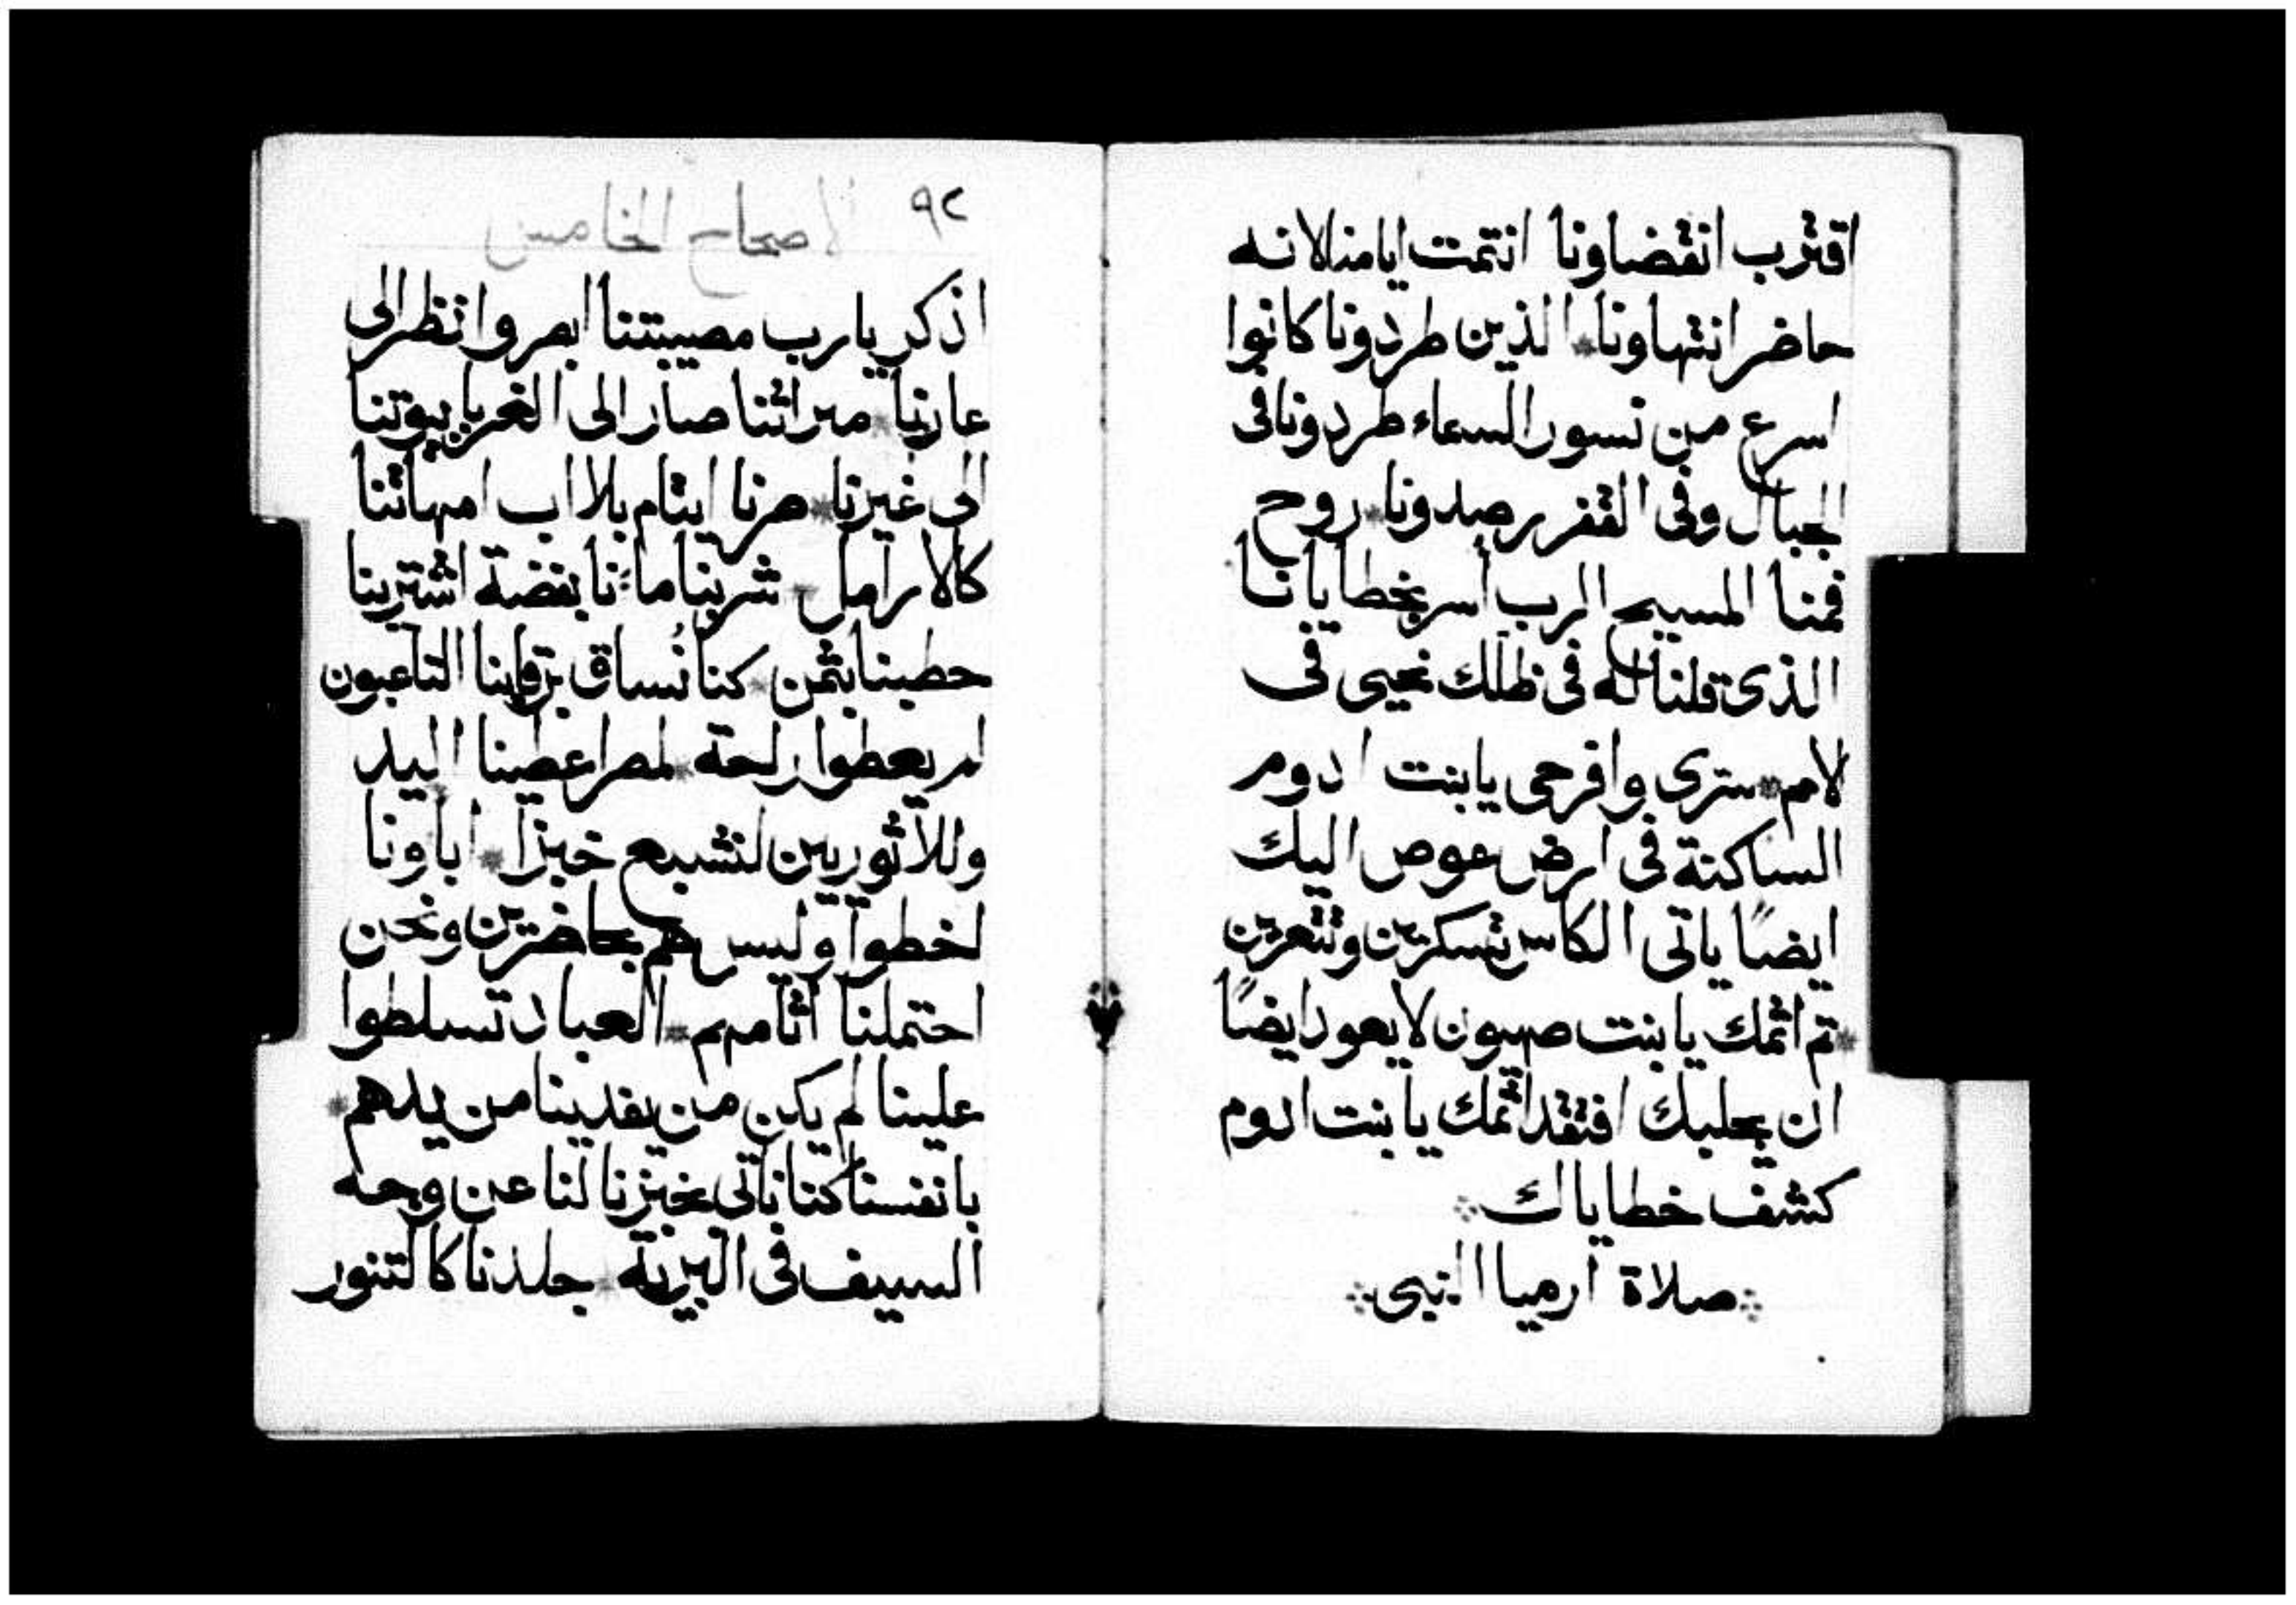 اقترب انقضاونا انتمت ايامنا لانه
حاضر انتهاونا الذين طردونا كانوا
اسرع من نسور السماء طردونا في
الجبال وفي القفر رصدونا روح
فمنا المسيح الرب أسر بخطايانا
الذي قلنا له في ظلك نحيى في
الامم سترى وافرحى يا بنت ادوم
الساكنة في ارض عوص اليك
ايضًا ياتى الكاس تسكرين وتتعرين
تم اثمك يا بنت صهيون لا يعود ايضًا
ان يجليك افتقد اثمك يا بنت ادوم
كشف خطاياك
صلاة ارميا النبى
٩٢
الاصحاح الخامس
اذكر يا رب مصيبتنا ابصر وانظر الى
عارنا ميراثنا صار الى الغربا بيوتنا
الى غيرنا صرنا ايتام بلا اب امهاتنا
كالارامل شربنا ماءنا بفضة اشترينا
حطبنا بثمن كنا نُساق برقابنا التاعبون
لم يعطوا راحة لمصر اعطينا اليد
وللاثوريين لنشبع خبزا اباونا
اخطوا وليس هم بحاضرين ونحن
احتملنا أثامهم العباد تسلطوا
علينا لم يكن من يفدينا من يدهم
بانفسنا كنا ناتى بخبزنا لنا عن وجه
السيف في البرية جلدنا كالتنور